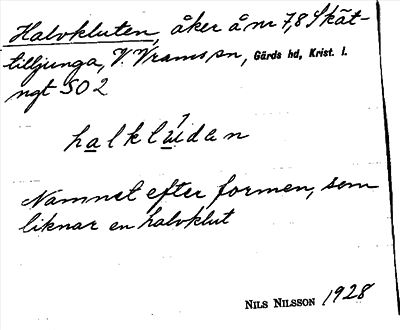 Halvkluten, åker å nr 7,8 Skät-
tilljunga, V. Vrams sn, Gärds hd, Krist. l.
ngt SO 2
halkludan
Namnet efter formen, som
liknar en halvklut
NILS NILSSON 1928